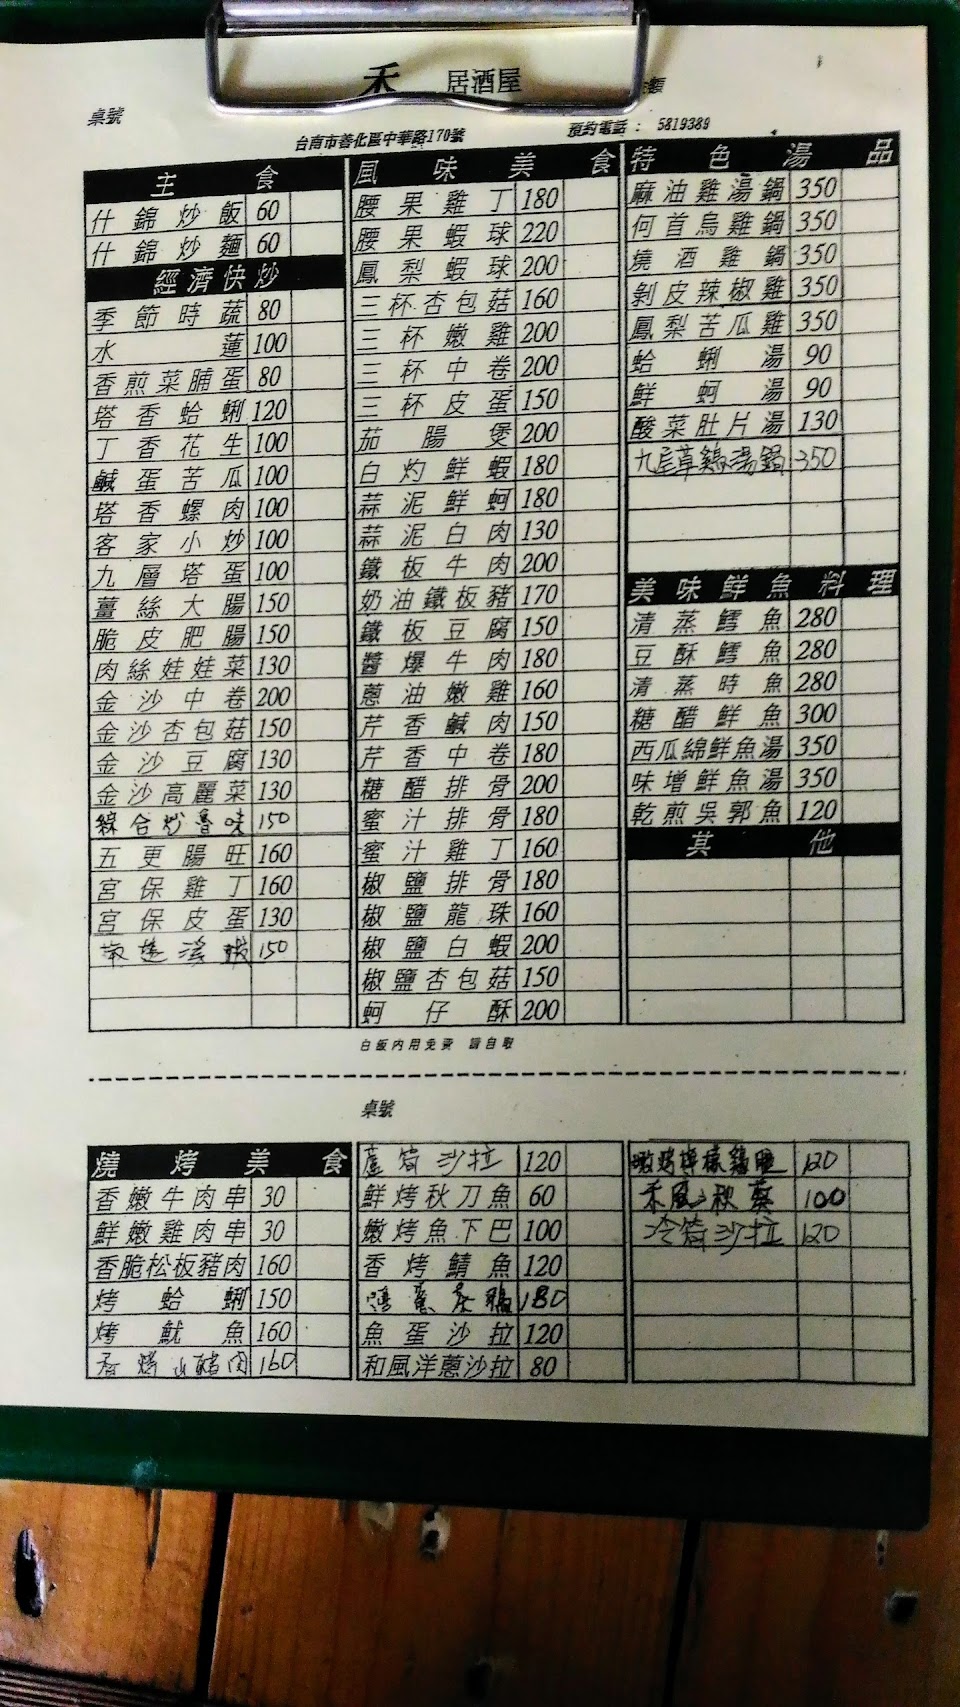 禾 居酒屋
桌號
台南市善化區中華路170號
預約電話： 5819389
主食
什錦炒飯 60
什錦炒麵 60
經濟快炒
季節時蔬 80
水蓮 100
香煎菜脯蛋 80
塔香蛤蜊 120
丁香花生 100
鹹蛋苦瓜 100
塔香螺肉 100
客家小炒 100
九層塔蛋 100
薑絲大腸 150
脆皮肥腸 150
肉絲娃娃菜 130
金沙中卷 200
金沙杏包菇 150
金沙豆腐 130
金沙高麗菜 130
綜合炒魯味 150
五更腸旺 160
宮保雞丁 160
宮保皮蛋 130
150
風味美食
腰果雞丁 180
腰果蝦球 220
鳳梨蝦球 200
三杯杏包菇 160
三杯嫩雞 200
三杯中卷 200
三杯皮蛋 150
茄腸煲 200
白灼鮮蝦 180
蒜泥鮮蚵 180
蒜泥白肉 130
鐵板牛肉 200
奶油鐵板豬 170
鐵板豆腐 150
醬爆牛肉 180
蔥油嫩雞 160
芹香鹹肉 150
芹香中卷 180
糖醋排骨 200
蜜汁排骨 180
蜜汁雞丁 160
椒鹽排骨 180
椒鹽龍珠 160
椒鹽白蝦 200
椒鹽杏包菇 150
蚵仔酥 200
特色湯品
麻油雞湯鍋 350
何首烏雞鍋 350
燒酒雞鍋 350
剝皮辣椒雞 350
鳳梨苦瓜雞 350
蛤蜊湯 90
鮮蚵湯 90
酸菜肚片湯 130
九尾草雞湯鍋 350
美味鮮魚料理
清蒸鱈魚 280
豆酥鱈魚 280
清蒸時魚 280
糖醋鮮魚 300
西瓜綿鮮魚湯 350
味增鮮魚湯 350
乾煎吳郭魚 120
其他
白飯內用免費 請自取
桌號
燒烤美食
香嫩牛肉串 30
鮮嫩雞肉串 30
香脆松板豬肉 160
烤蛤蜊 150
烤魷魚 160
香烤山豬肉 160
蘆筍沙拉 120
鮮烤秋刀魚 60
嫩烤魚下巴 100
香烤鯖魚 120
180
魚蛋沙拉 120
和風洋蔥沙拉 80
嫩烤檸檬雞腿 120
禾風秋葵 100
冷筍沙拉 120